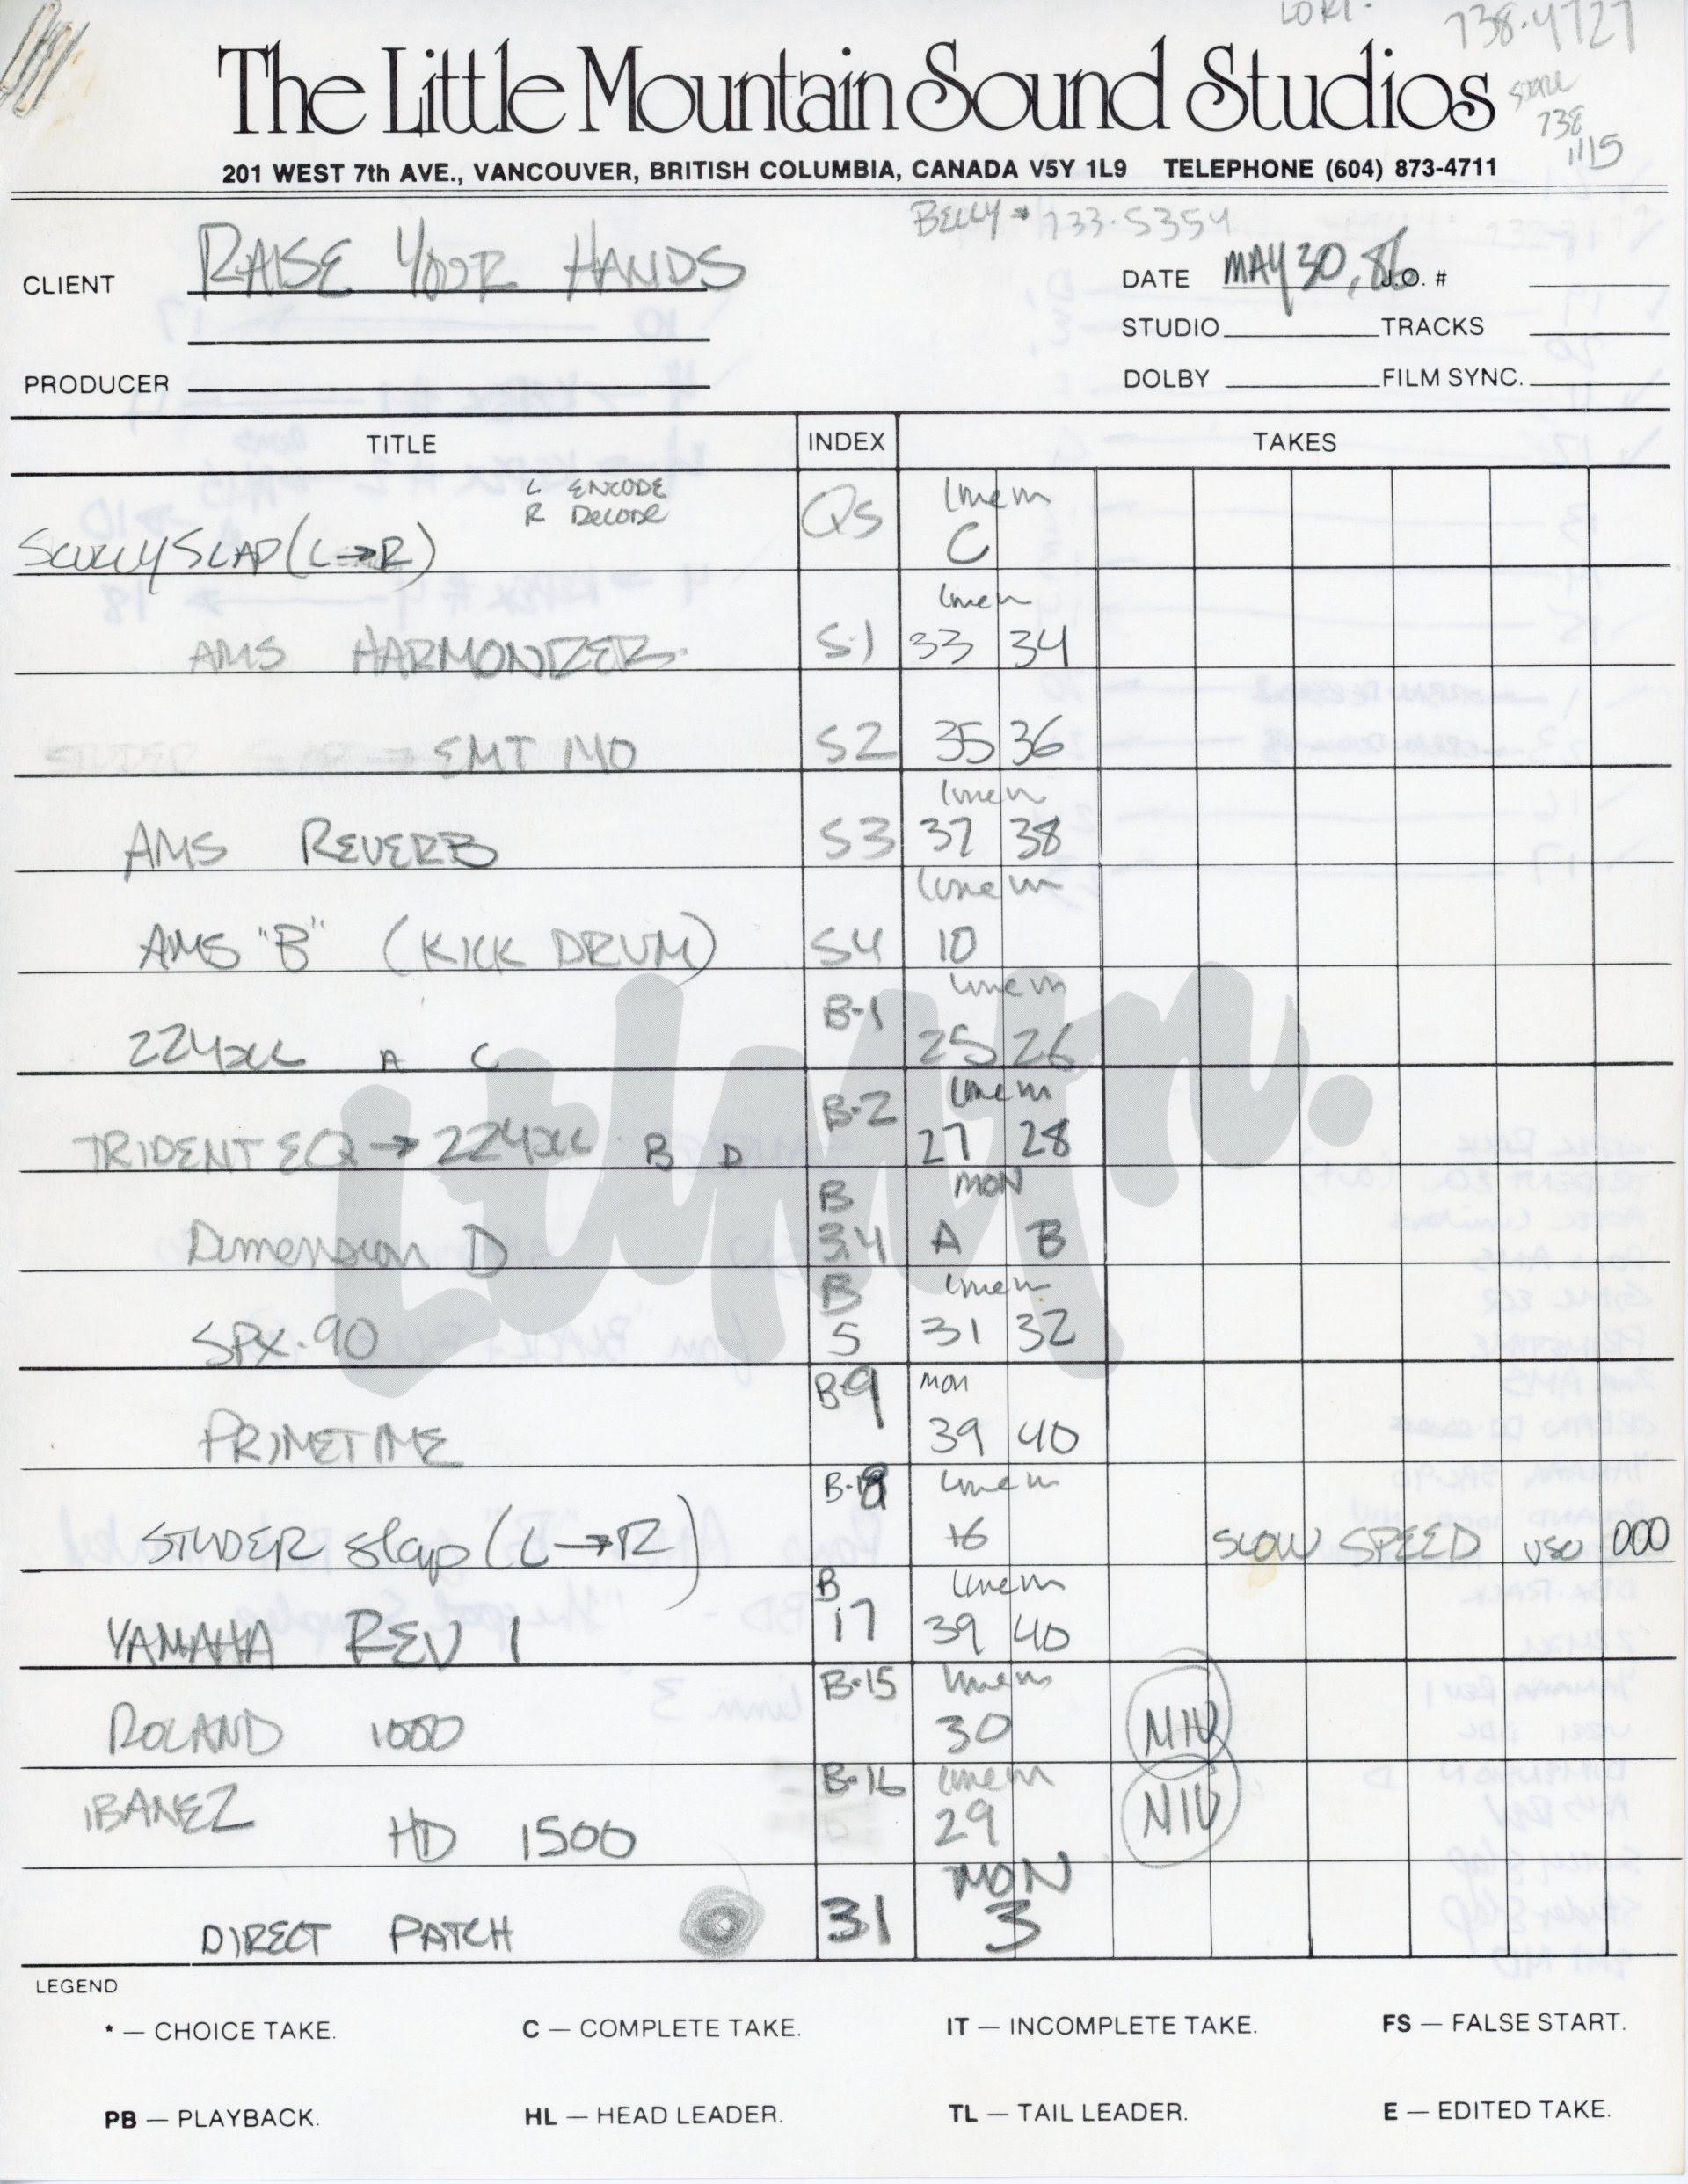 LORI. 738-4727
The Little Mountain Sound Studios
STORE
738
1115
201 WEST 7th AVE., VANCOUVER, BRITISH COLUMBIA, CANADA V5Y 1L9 TELEPHONE (604) 873-4711
BELLY → 733-5354
CLIENT RAISE YOUR HANDS
DATE MAY 30, 86 J.O. #
STUDIO TRACKS
PRODUCER
DOLBY FILM SYNC.
TITLE INDEX TAKES
L ENCODE
R DECODE
SCULLY SLAP (L→R) Q5 line in C
AMS HARMONIZER S-1 line in 33 34
EMT 140 S2 35 36
AMS REVERB S3 line in 37 38
AMS "B" (KICK DRUM) S4 line in 10
224XL A C B-1 line in 25 26
TRIDENT EQ → 224XL B D B-2 line in 27 28
Dimension D B 3.4 MON A B
SPX-90 B 5 line in 31 32
PRIMETIME B-9 mon 39 40
STUDER Slap (L→R) line in 16 SLOW SPEED VSO 000
YAMAHA REV 1 B 17 line in 39 40
ROLAND 1000 B-15 line in 30 NIU
IBANEZ HD 1500 B-16 line in 29 NIU
DIRECT PATCH 31 MON 3
LTMTN.
LEGEND
* — CHOICE TAKE. C — COMPLETE TAKE. IT — INCOMPLETE TAKE. FS — FALSE START.
PB — PLAYBACK. HL — HEAD LEADER. TL — TAIL LEADER. E — EDITED TAKE.